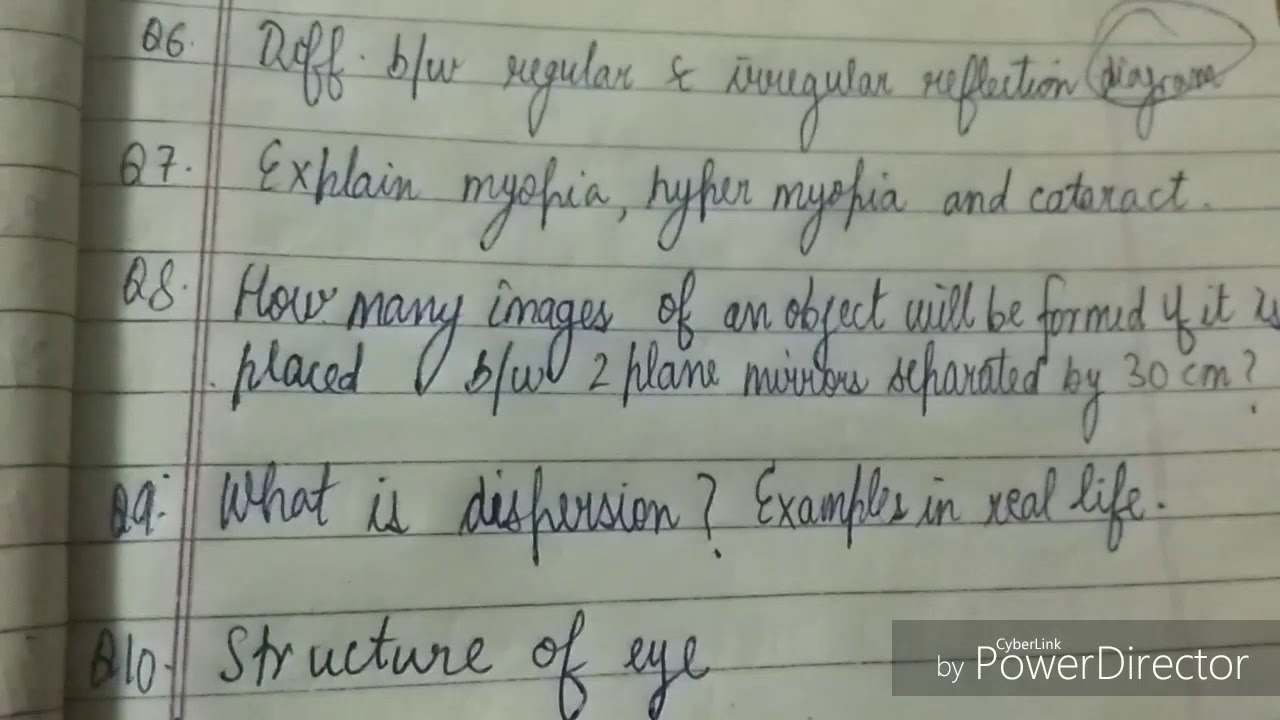 Q6. Diff. b/w regular & irregular reflection diagram
Q7. Explain myopia, hyper myopia and cataract.
Q8. How many images of an object will be formed if it is
placed b/w 2 plane mirrors separated by 30 cm?
Q9. What is dispersion? Examples in real life.
Q10. Structure of eye
CyberLink
by PowerDirector